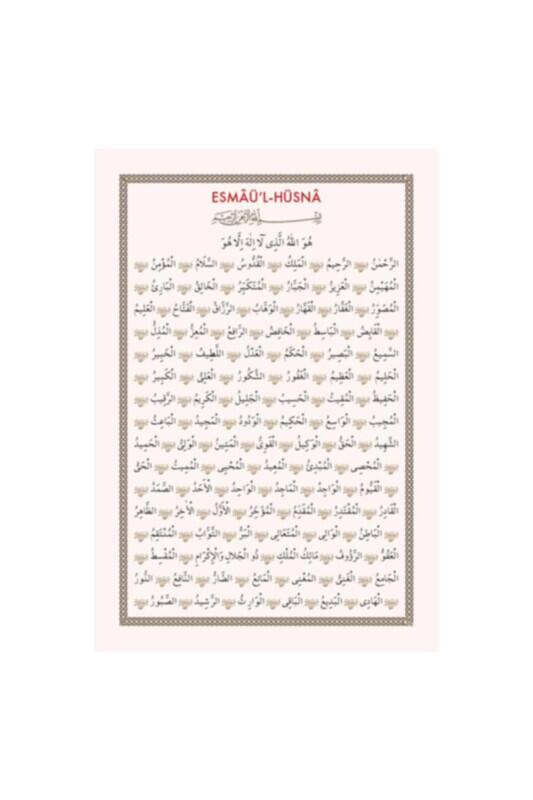 ESMÂÜ’L-HÜSNÂ
هُوَ اللّٰهُ الَّذِى لَا اِلٰهَ اِلَّا هُوَ
الرَّحْمٰنُ الرَّحِيمُ الْمَلِكُ الْقُدُّوسُ السَّلَامُ الْمُؤْمِنُ
الْمُهَيْمِنُ الْعَزِيزُ الْجَبَّارُ الْمُتَكَبِّرُ الْخَالِقُ الْبَارِئُ
الْمُصَوِّرُ الْغَفَّارُ الْقَهَّارُ الْوَهَّابُ الرَّزَّاقُ الْفَتَّاحُ الْعَلِيمُ
الْقَابِضُ الْبَاسِطُ الْخَافِضُ الرَّافِعُ الْمُعِزُّ الْمُذِلُّ
السَّمِيعُ الْبَصِيرُ الْحَكَمُ الْعَدْلُ اللَّطِيفُ الْخَبِيرُ
الْحَلِيمُ الْعَظِيمُ الْغَفُورُ الشَّكُورُ الْعَلِىُّ الْكَبِيرُ
الْحَفِيظُ الْمُقِيتُ الْحَسِيبُ الْجَلِيلُ الْكَرِيمُ الرَّقِيبُ
الْمُجِيبُ الْوَاسِعُ الْحَكِيمُ الْوَدُودُ الْمَجِيدُ الْبَاعِثُ
الشَّهِيدُ الْحَقُّ الْوَكِيلُ الْقَوِىُّ الْمَتِينُ الْوَلِىُّ الْحَمِيدُ
الْمُحْصِى الْمُبْدِئُ الْمُعِيدُ الْمُحْيِى الْمُمِيتُ الْحَىُّ
الْقَيُّومُ الْوَاجِدُ الْمَاجِدُ الْوَاحِدُ الْاَحَدُ الصَّمَدُ
الْقَادِرُ الْمُقْتَدِرُ الْمُقَدِّمُ الْمُؤَخِّرُ الْاَوَّلُ الْاٰخِرُ الظَّاهِرُ
الْبَاطِنُ الْوَالِى الْمُتَعَالِى الْبَرُّ التَّوَّابُ الْمُنْتَقِمُ
الْعَفُوُّ الرَّؤُوفُ مَالِكُ الْمُلْكِ ذُو الْجَلَالِ وَالْاِكْرَامِ الْمُقْسِطُ
الْجَامِعُ الْغَنِىُّ الْمُغْنِى الْمَانِعُ الضَّارُّ النَّافِعُ النُّورُ
الْهَادِى الْبَدِيعُ الْبَاقِى الْوَارِثُ الرَّشِيدُ الصَّبُورُ